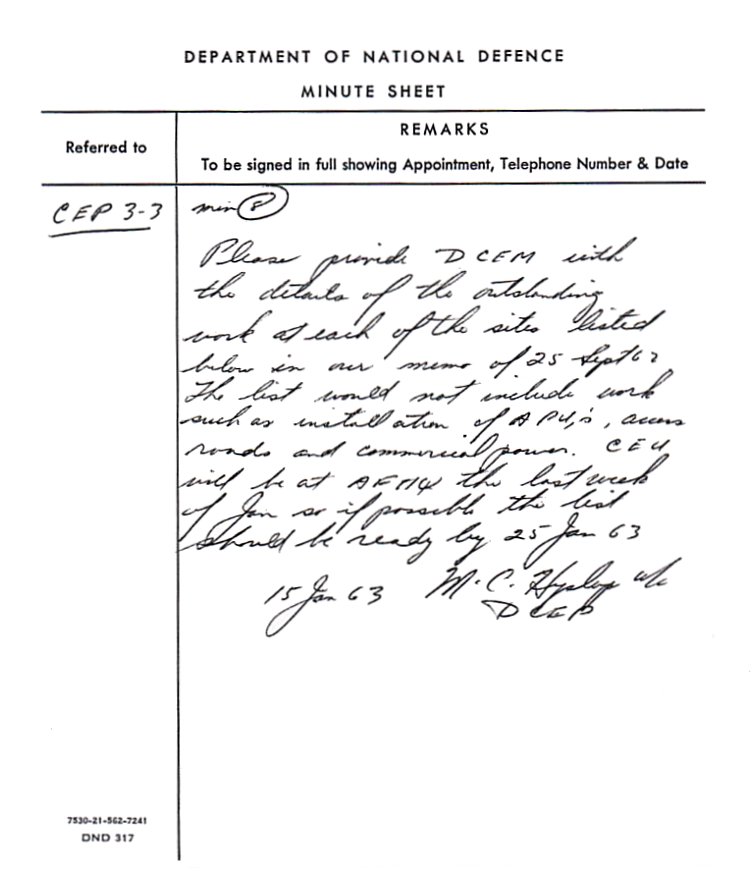 DEPARTMENT OF NATIONAL DEFENCE
MINUTE SHEET
Referred to
REMARKS
To be signed in full showing Appointment, Telephone Number & Date
CEP 3-3
min 8
Please provide DCEM with
the details of the outstanding
work at each of the sites listed
below in our memo of 25 Sept 62
The list would not include work
such as installation of APU's, access
roads and commercial power. CEU
will be at AFHQ the last week
of Jan so if possible the list
should be ready by 25 Jan 63
15 Jan 63 M. C. Hyslop w/c
DCEP
7530-21-562-7241
DND 317